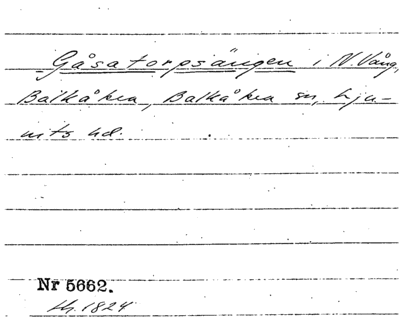 Gåsatorpsängen i N. Vång,
Balkåkra, Balkåkra sn, Lju-
nits hd.
Nr 5662.
1824